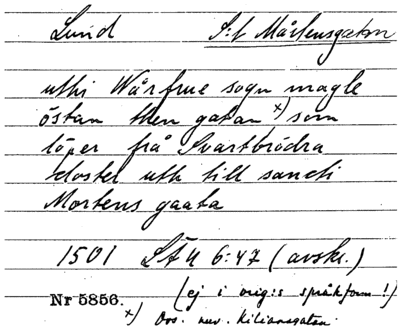 Lund S:t Mårtensgatan
uthi Wårfrue sogn nagle
östan then gatan x) som
löper från Svartbrödra
kloster uth till sancti
Mortens gaata
1501 LÄU 6:47 (avskr.)
(ej i orig:s språkform!)
Nr 5856.
x) Dvs. nuv. Kiliansgatan.